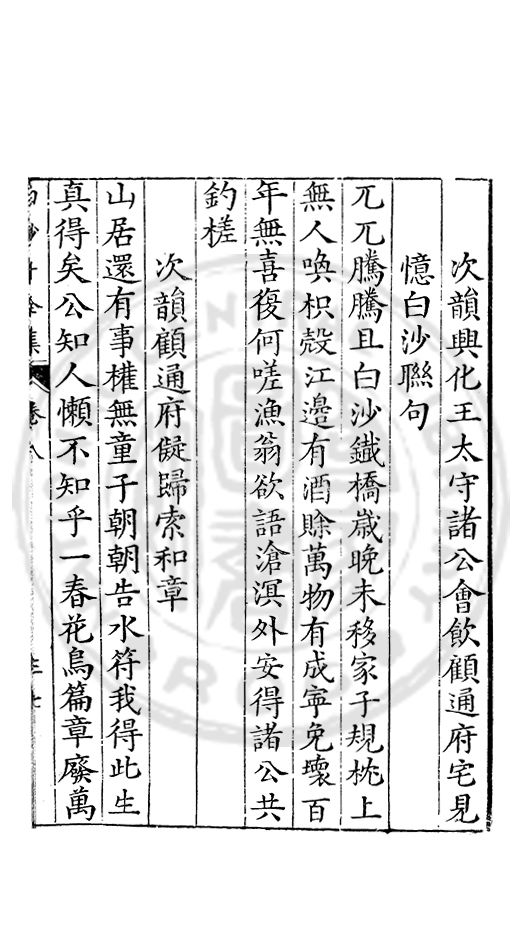 次韻興化王太守諸公會飲顧通府宅見
憶白沙聮句
兀兀騰騰且白沙鐡橋嵗晚未移家子規枕上
無人喚枳殼江邊有酒賒萬物有成寧免壞百
年無喜復何嗟漁翁欲語滄溟外安得諸公共
釣槎
次韻顧通府儗歸索和章
山居還有事權無童子朝朝告水符我得此生
真得矣公知人懶不知乎一春花鳥篇章廢萬